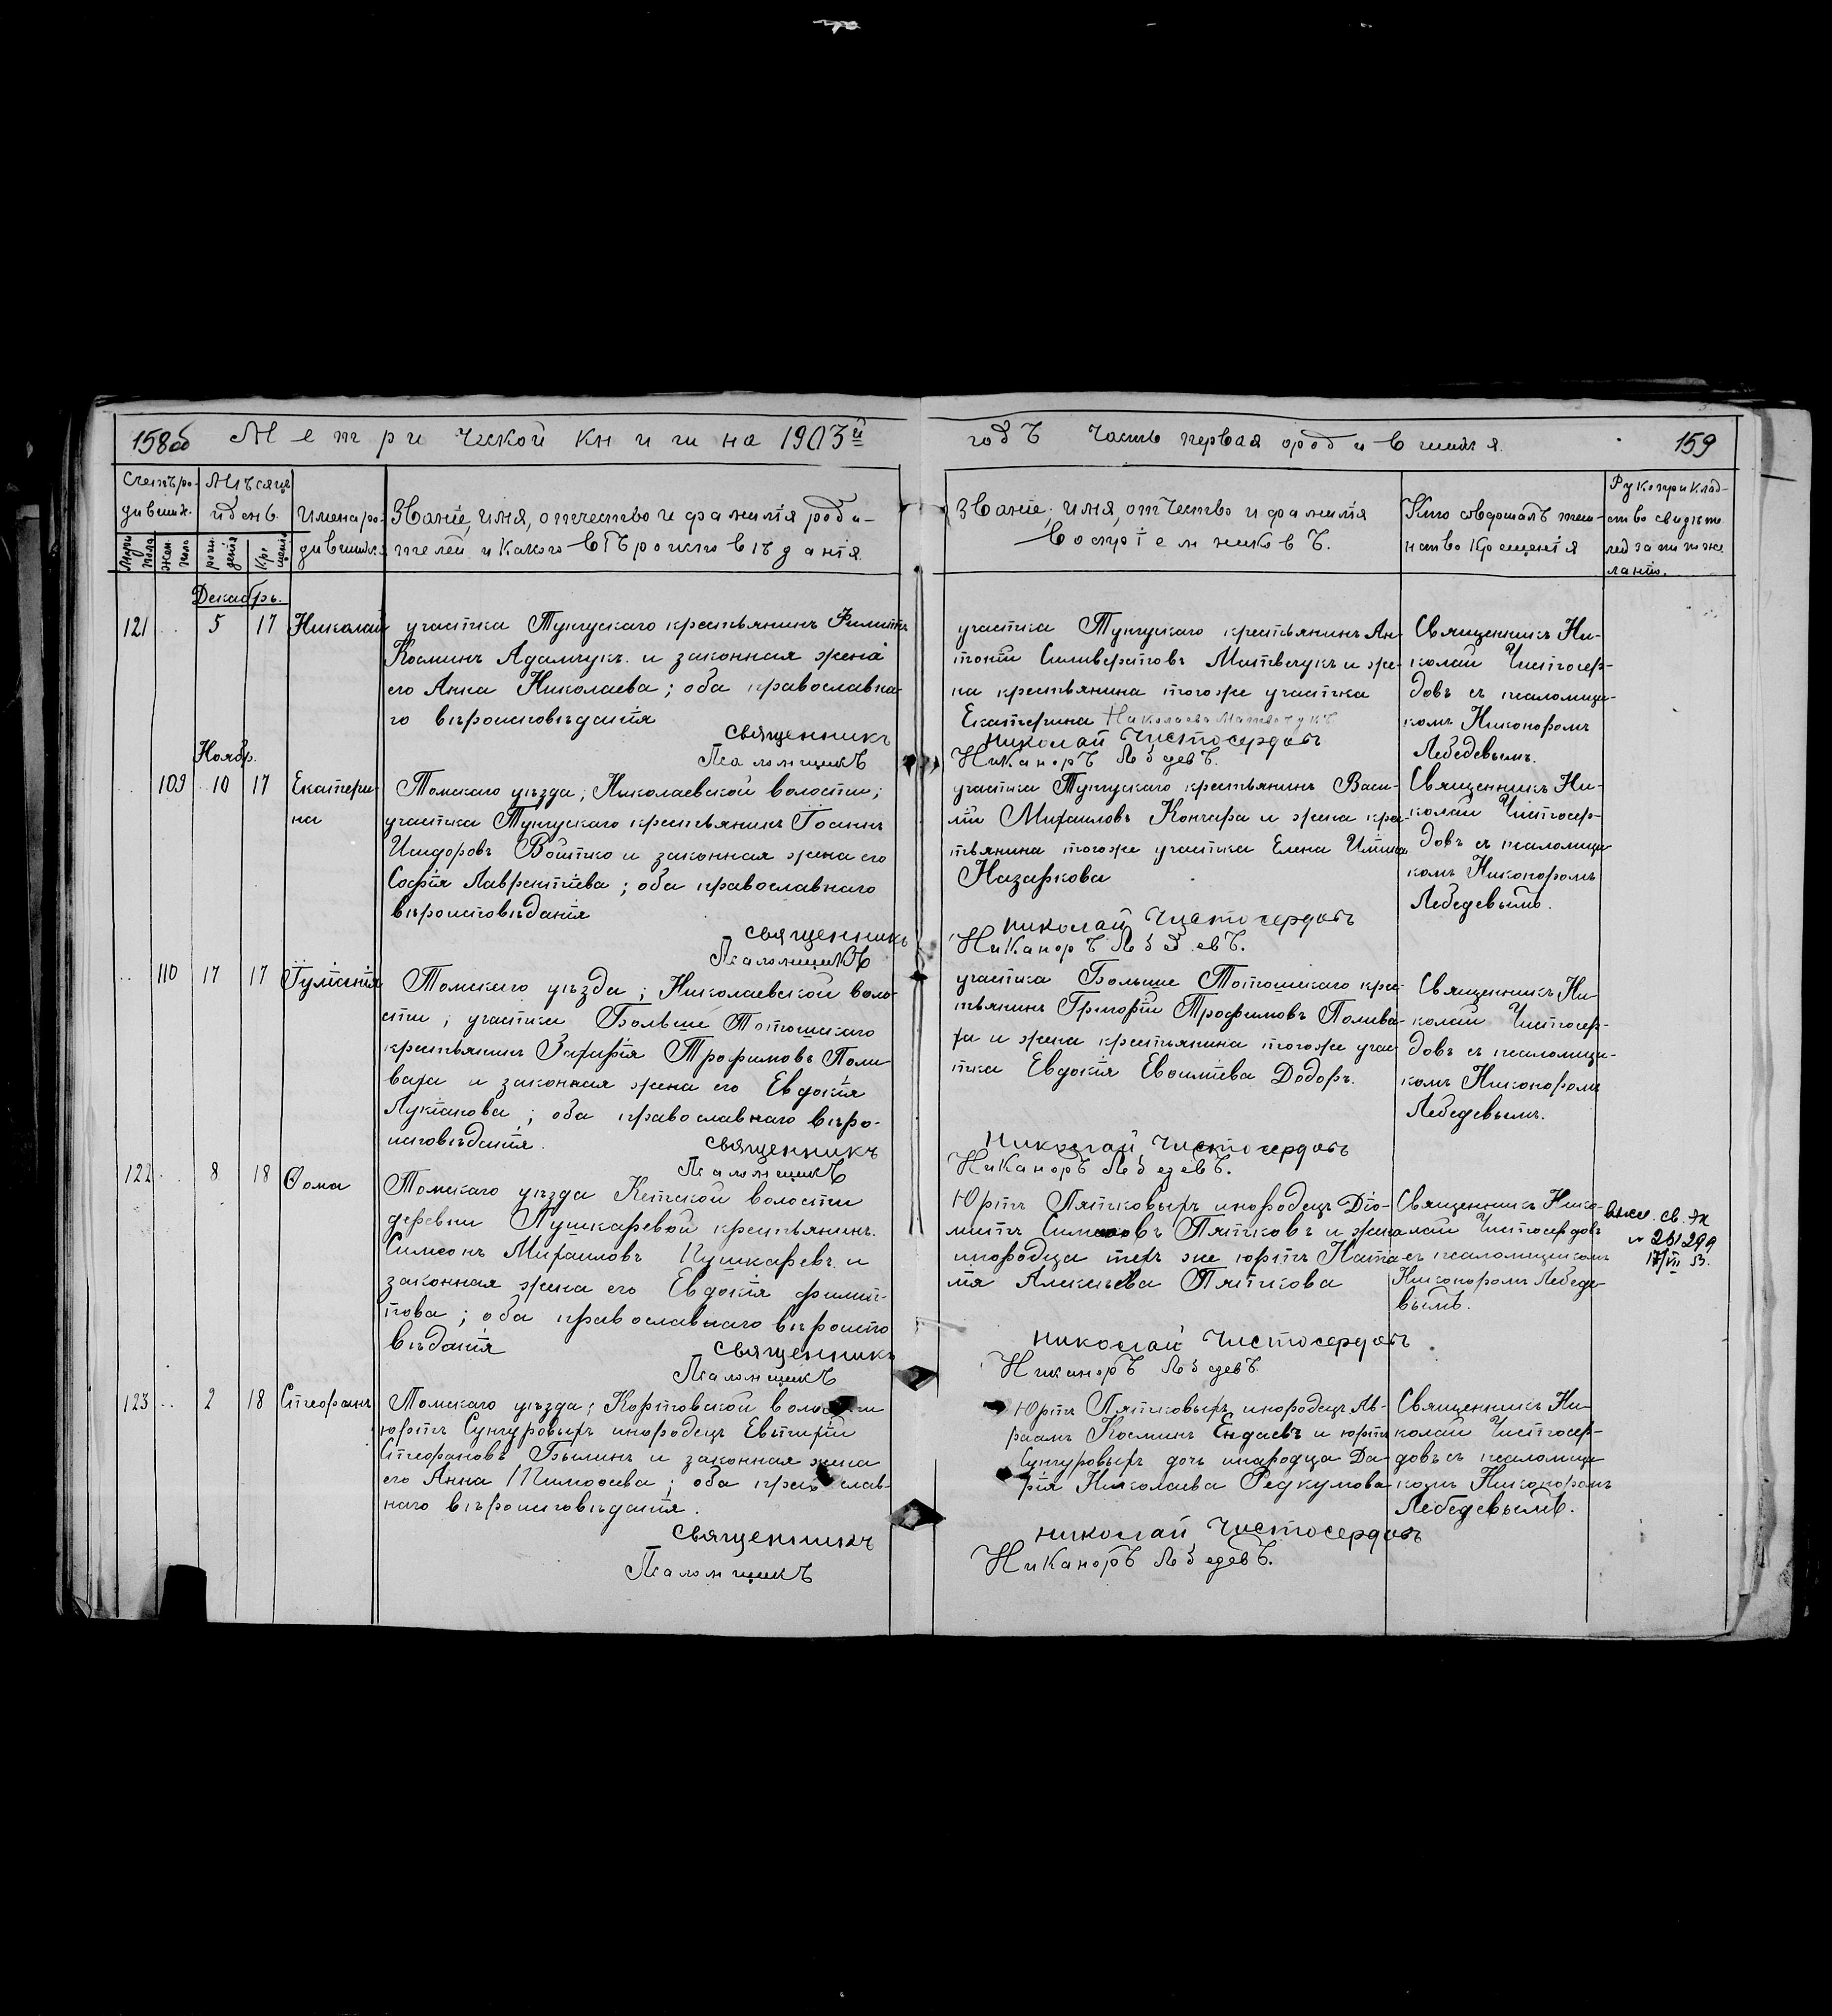 158об Метрической книги на 1903й
годъ Часть первая о родившихся. 159
Счетъ ро-
дивших.
Мужеска
пола
жен.
пола
Мѣсяцъ
и день.
рожденія
Крещенія
Имена ро-
дившихся
Званіе, имя, отчество и фамилія роди-
телей и какого вѣроисповѣданія.
Званіе, имя, отчество и фамилія
воспріемниковъ.
Кто совершалъ таин-
ство крещенія
Рукоприклад-
ство свидѣте
лей записи по же
ланію.
Декабрь.
121 .. 5 17 Николай
участка Тунгускаго крестьянинъ Филиппъ
Косминъ Адамчукъ и законная жена
его Анна Николаева; оба православна-
го вѣроисповѣданія
Священникъ
Псаломщикъ
участка Тунгускаго крестьянинъ Ан-
тоній Силиверстовъ Матвечукъ и же-
на крестьянина тогоже участка
Екатерина Николаева Матвечукъ
Николай Чистосердовъ
Никаноръ Лебедевъ.
Священникъ Ни-
колай Чистосер-
довъ съ псаломщи-
комъ Никоноромъ
Лебедевымъ.
Ноябр.
.. 109 10 17 Екатери-
на
Томскаго уѣзда; Николаевской волости;
участка Тунгускаго крестьянинъ Іоаннъ
Исидоровъ Войтко и законная жена его
Софія Лаврентіева; оба православнаго
вѣроисповѣданія
Священникъ
Псаломщикъ
участка Тунгускаго крестьянинъ Васи-
лій Михаиловъ Кончара и жена кре-
стьянина тогоже участка Елена
Назаркова
Николай Чистосердовъ
Никаноръ Лебедевъ.
Священникъ Ни-
колай Чистосер-
довъ съ псаломщи-
комъ Никоноромъ
Лебедевымъ.
.. 110 17 17 Іуліанія
Томскаго уѣзда; Николаевской воло-
сти; участка Больше Тотошскаго
крестьянинъ Захарія Трофимовъ Поли-
ваха и законная жена его Евдокія
Лукіанова; оба православнаго вѣро-
исповѣданія.
Священникъ
Псаломщикъ
участка Больше Тотошскаго кре-
стьянинъ Григорій Трофимовъ Полива-
ха и жена крестьянина тогоже учас-
тка Евдокія Додоръ.
Николай Чистосердовъ
Никаноръ Лебедевъ.
Священникъ Ни-
колай Чистосер-
довъ съ псаломщи-
комъ Никоноромъ
Лебедевымъ.
122 .. 8 18 Ѳома
Томскаго уѣзда Кетской волости
деревни Пушкаревой крестьянинъ
Симеонъ Михаиловъ Пушкаревъ и
законная жена его Евдокія Филип-
пова; оба православнаго вѣроиспо
вѣданія
Священникъ
Псаломщикъ
Юртъ Пятковыхъ инородецъ Діо-
митъ Симеоновъ Пятковъ и жена
инородца техъ же юртъ Ната-
лія Алексѣева Пяткова
Николай Чистосердовъ
Никаноръ Лебедевъ.
Священникъ Нико-
лай Чистосердовъ
съ псаломщикомъ
Никоноромъ Лебеде-
вымъ.
св.
17/VII 53.
123 .. 2 18 Стефанъ
Томскаго уѣзда; Корговской волости
юртъ Сунгуровыхъ инородецъ Евтихій
Стефановъ Былинъ и законная жена
его Анна Тимофеева; оба православ-
наго вѣроисповѣданія.
Священникъ
Псаломщикъ
Юртъ Пятковыхъ инородецъ Ав-
раамъ Косминъ Ендаевъ и юртъ
Сунгуровыхъ дочь инородца Да-
рія Николаева Редкумова
Николай Чистосердовъ
Никаноръ Лебедевъ.
Священникъ Ни-
колай Чистосер-
довъ съ псаломщи
комъ Никоноромъ
Лебедевымъ.